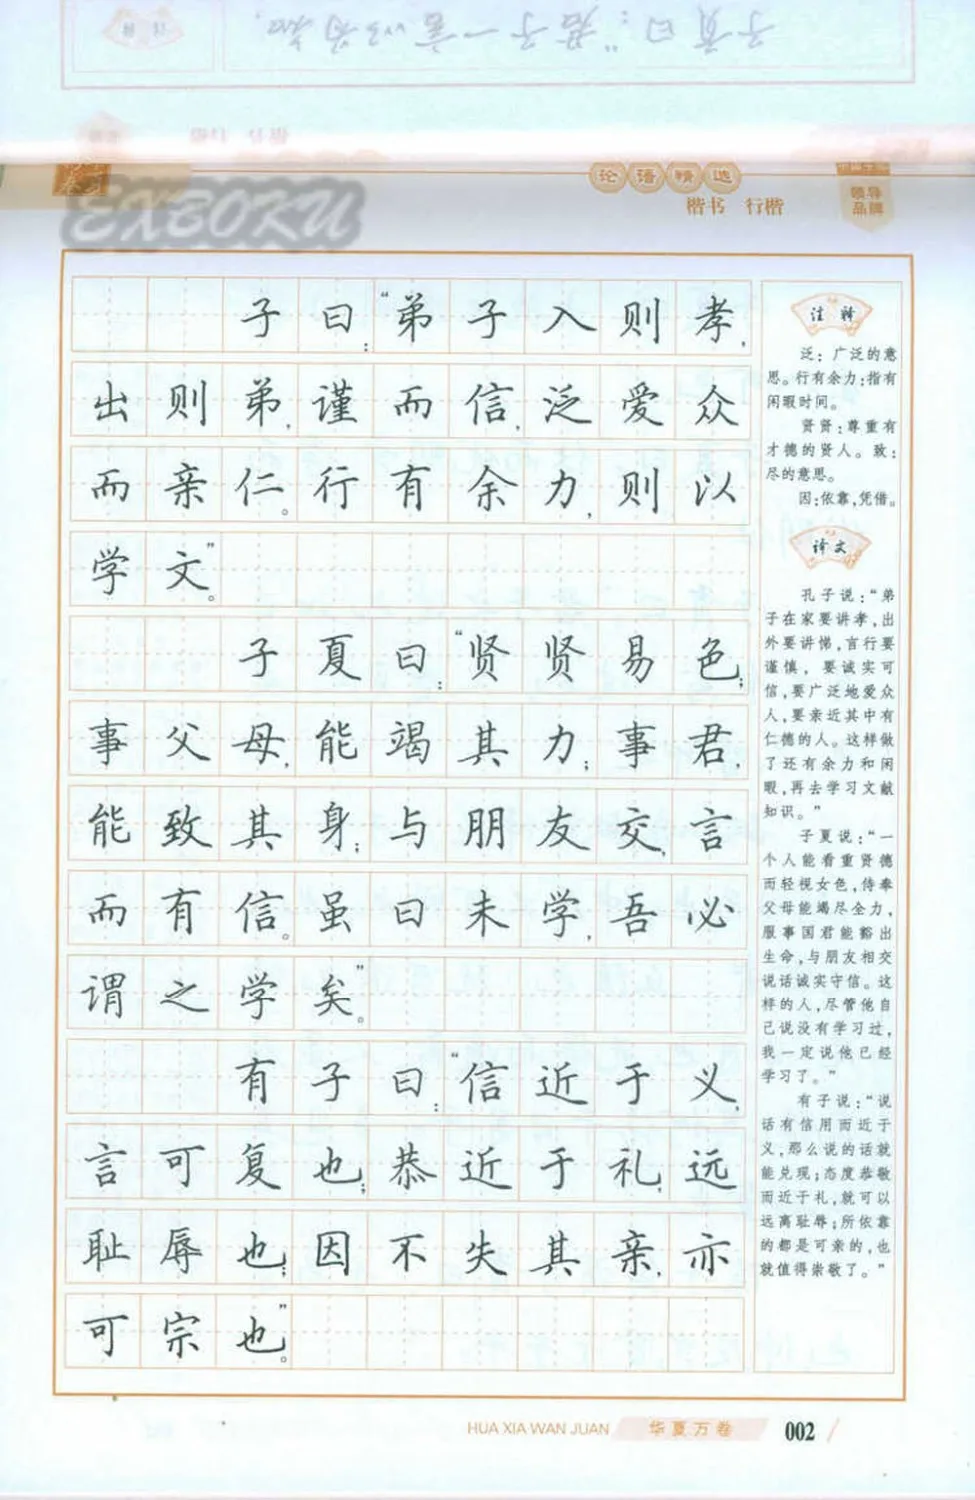 子贡曰：“君子一言以为知，
论语精选
楷书 行楷
领导
品牌
EXBOKU
子曰：“弟子入则孝，
出则弟，谨而信，泛爱众
而亲仁。行有余力，则以
学文。”
子夏曰：“贤贤易色；
事父母，能竭其力；事君，
能致其身；与朋友交，言
而有信。虽曰未学，吾必
谓之学矣。”
有子曰：“信近于义，
言可复也；恭近于礼，远
耻辱也；因不失其亲，亦
可宗也。”
注释
泛：广泛的意
思。行有余力：指有
闲暇时间。
贤贤：尊重有
才德的贤人。致：
尽的意思。
因：依靠，凭借。
译文
孔子说：“弟
子在家要讲孝，出
外要讲悌，言行要
谨慎，要诚实可
信，要广泛地爱众
人，要亲近其中有
仁德的人。这样做
了还有余力和闲
暇，再去学习文献
知识。”
子夏说：“一
个人能看重贤德
而轻视女色，侍奉
父母能竭尽全力，
服事国君能豁出
生命，与朋友相交
说话诚实守信。这
样的人，尽管他自
己说没有学习过，
我一定说他已经
学习了。”
有子说：“说
话有信用而近于
义，那么说的话就
能兑现；态度恭敬
而近于礼，就可以
远离耻辱；所依靠
的都是可亲的，也
就值得崇敬了。”
HUA XIA WAN JUAN 华夏万卷 002